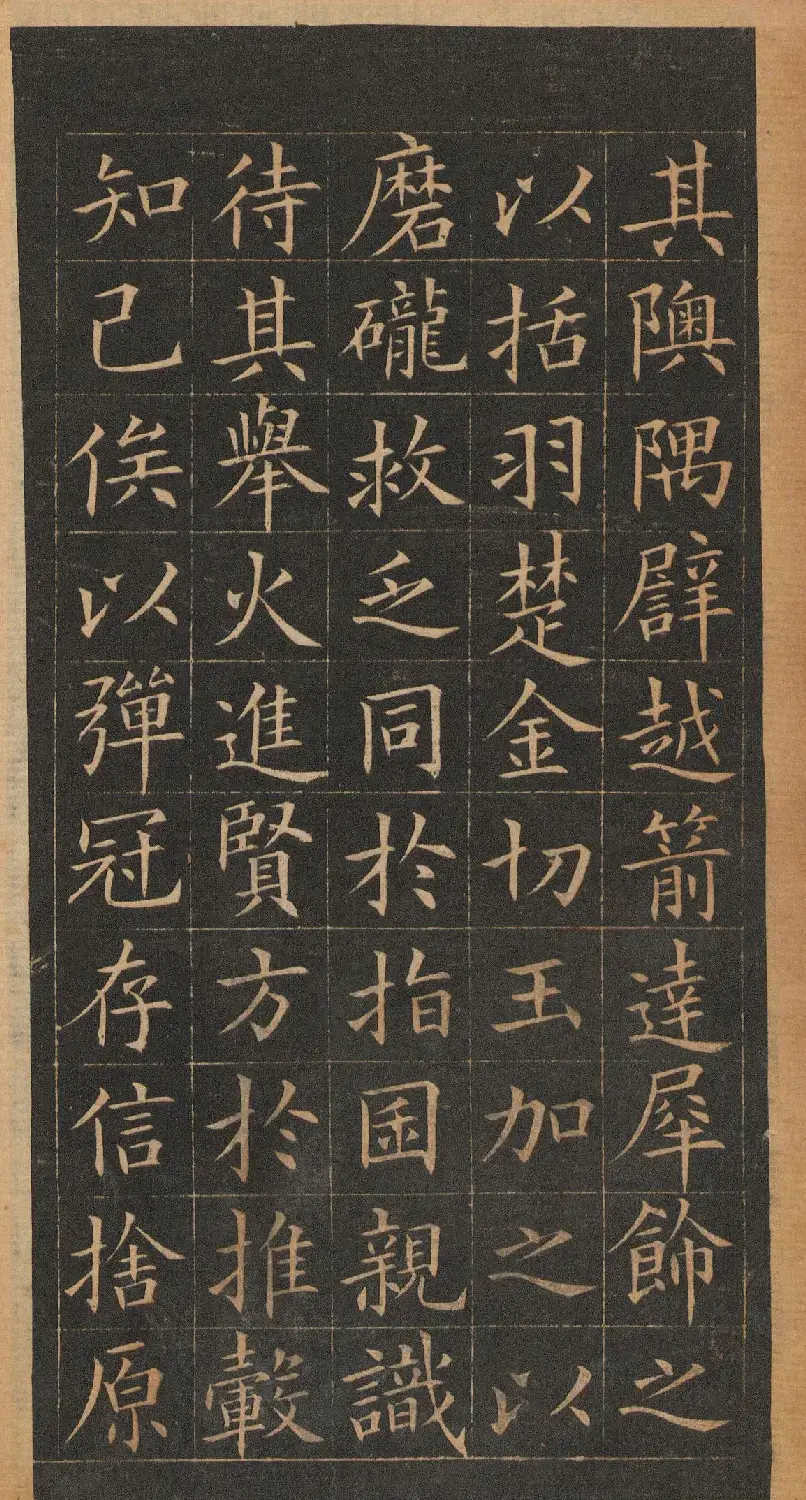 其隩隅譬越箭達犀飾之
以括羽楚金切玉加之以
磨礲救乏同於指囷親識
待其舉火進賢方於推轂
知己俟以彈冠存信捨原